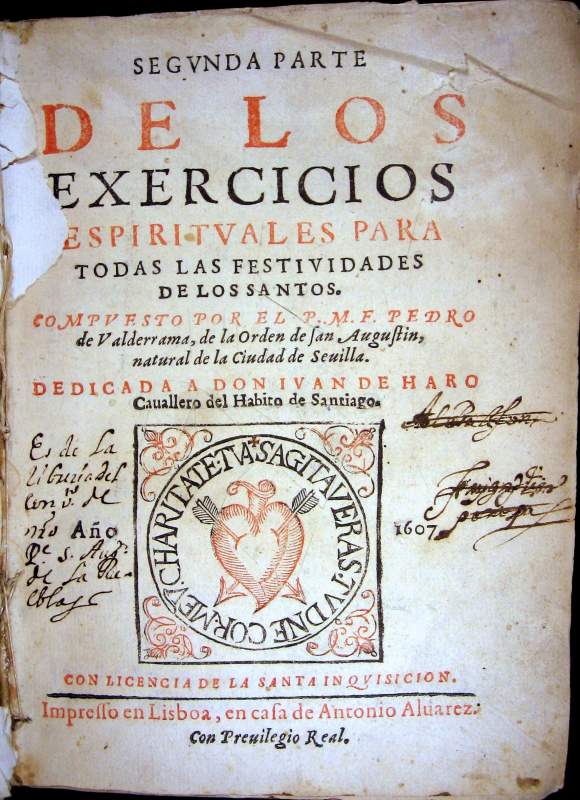 SEGVNDA PARTE
DE LOS
EXERCICIOS
ESPIRITVALES PARA
TODAS LAS FESTIVIDADES
DE LOS SANTOS.
COMPVESTO POR EL P. M. F. PEDRO
de Valderrama, de la Orden de ſan Auguſtin,
natural de la Ciudad de Seuilla.
DEDICADA A DON IVAN DE HARO
Cauallero del Habito de Santiago.
SAGITAVERAS TV DNE COR MEV CHARITATE TVA
Es de la
libreria del
de
Año 1607.
de la Pue
bla
CON LICENCIA DE LA SANTA INQVISICION.
Impreſſo en Lisboa, en caſa de Antonio Aluarez.
Con Preuilegio Real.